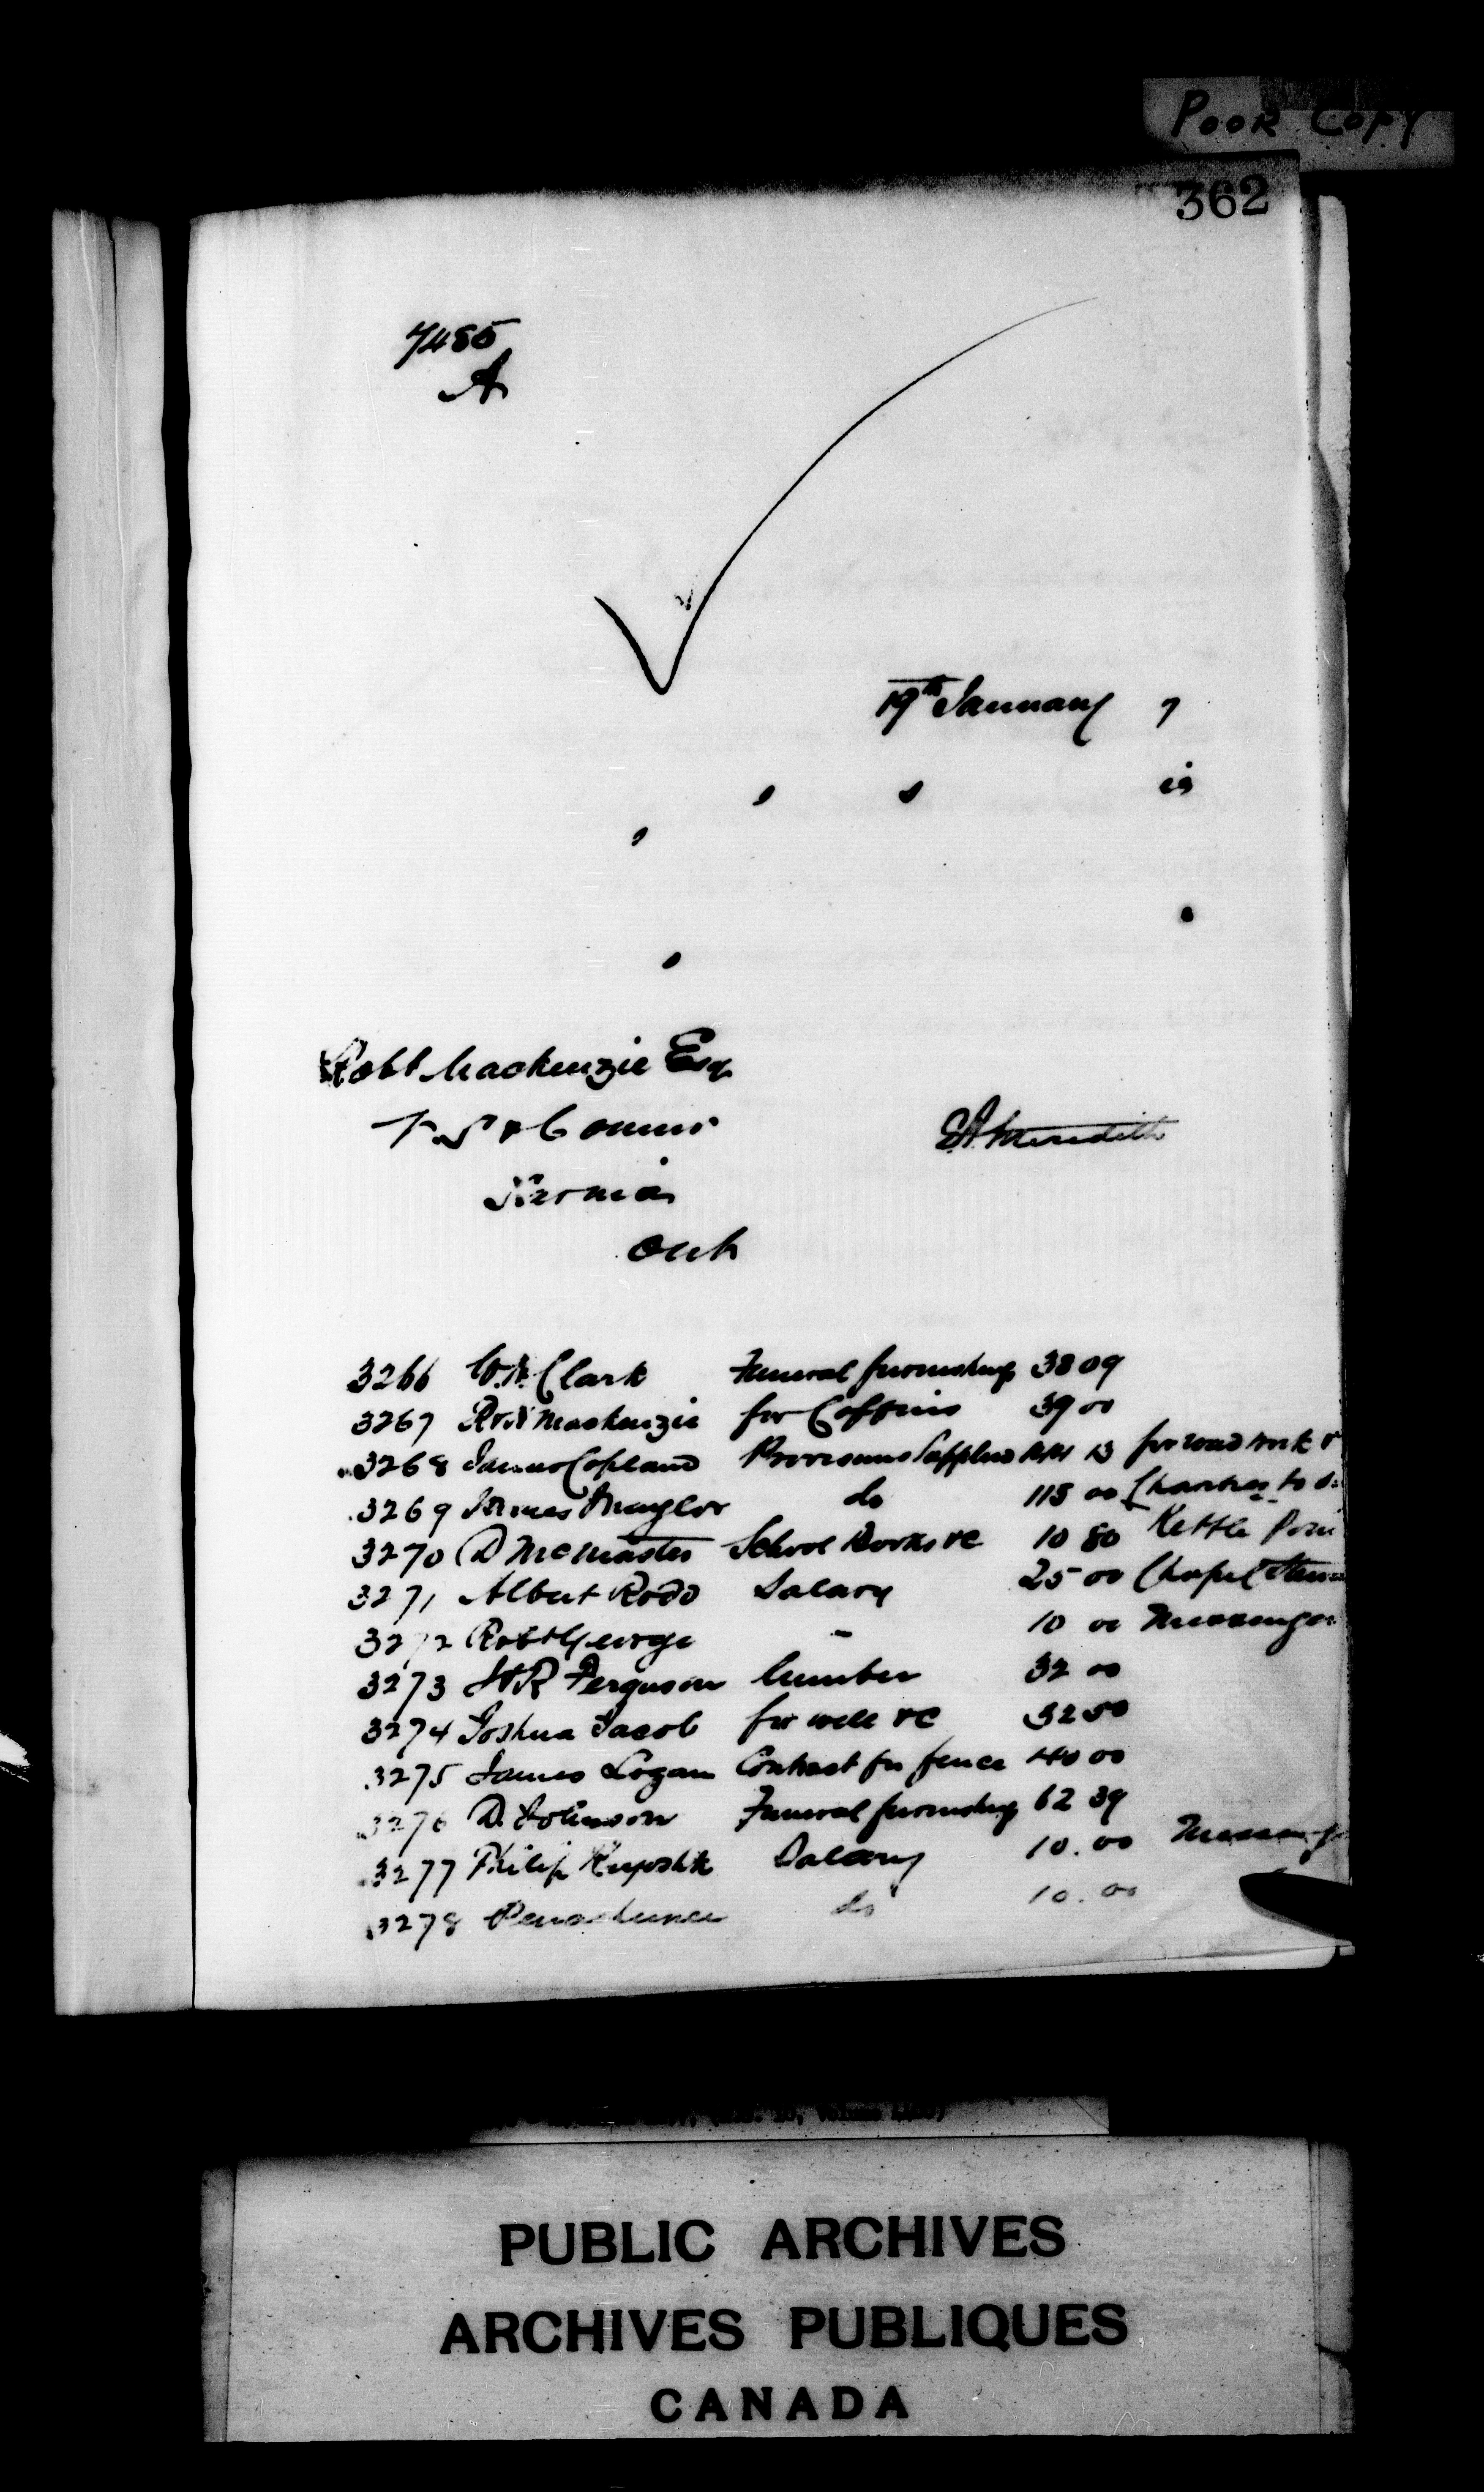 POOR COPY
362
7485
A
19th January 7
is
Robt Mackenzie Esq
Sarnia
Ont
E.A. Meredith
3266 W. Clark Funeral furnishings 38 09
3267 Mackenzie for Coffins 39 00
3268 James Copland Provisions Supplied 13 for road work
3269 James do 115 00 Charities to
3270 D McMaster School Books &c 10 80 Kettle Poin
3271 Albert Rodd Salary 25 00 Chapel
3272 Robt George 10 00 Messenger
3273 Ferguson lumber 32 00
3274 Joshua Jacob for well &c 32 50
3275 James Logan Contract for fence 40 00
3276 D. Johnson Funeral furnishings 62 39
3277 Philip Salary 10.00
3278 do 10.00
PUBLIC ARCHIVES
ARCHIVES PUBLIQUES
CANADA